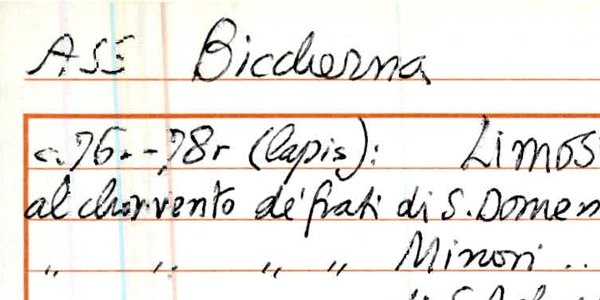 ASS Biccherna
c. 76. - 78r (lapis): LIMOS
al chonvento de' frati di S. Domen
" " " " Minori ..